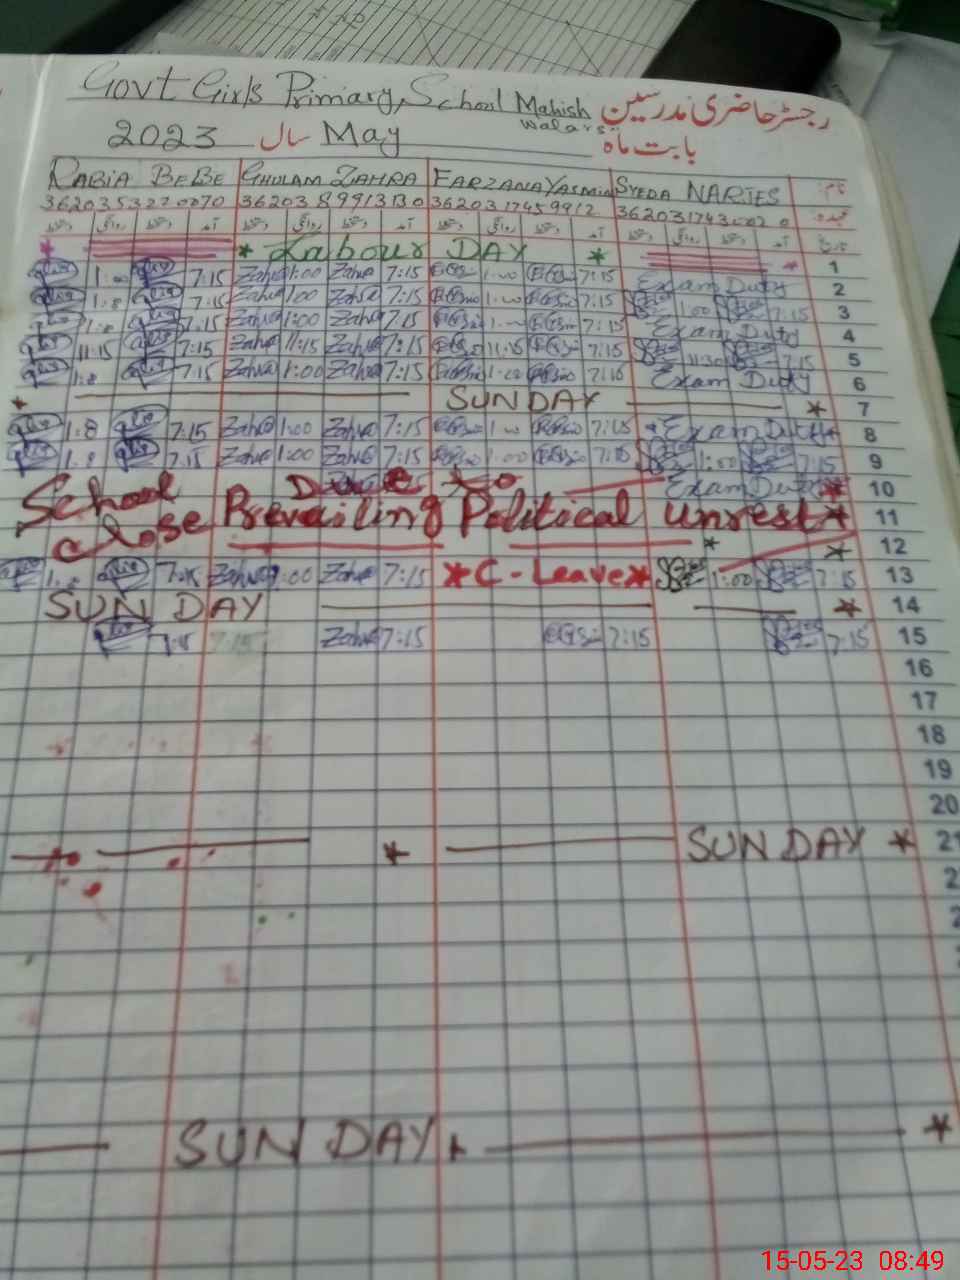 Govt Girls Primary School Mahish Walars رجسٹر حاضری مدرسین
2023 سال May بابت ماہ
RABIA BEBE GHULAM ZAHRA FARZANA YASMIN SYEDA NARJES نام:
3620353270070 3620389913130 3620317459912 عہدہ:
دستخط روانگی دستخط آمد دستخط روانگی دستخط آمد دستخط روانگی دستخط آمد دستخط روانگی دستخط آمد تاریخ
* * Labour DAY * * 1
1:00 7:15 Zahra 1:00 Zahra 7:15 1:00 7:15 Exam Duty 2
1:8 7:15 Zahra 1:00 Zahra 7:15 1:00 7:15 1:00 7:15 3
1:8 7:15 Zahra 1:00 Zahra 7:15 1:00 7:15 Exam Duty 4
11:15 7:15 Zahra 11:15 Zahra 7:15 11:15 7:15 11:30 7:15 5
1:8 7:15 Zahra 1:00 Zahra 7:15 1:00 7:15 Exam Duty 6
* SUNDAY * 7
1:8 7:15 Zahra 1:00 Zahra 7:15 1:00 7:15 * Exam Duty * 8
1:8 7:15 Zahra 1:00 Zahra 7:15 1:00 7:15 1:00 7:15 9
School Due to Exam Duty * 10
close Prevailing Political unrest * 11
* * 12
7:15 Zahra 1:00 Zahra 7:15 * C-Leave * 1:00 7:15 13
SUNDAY * 14
7:15 Zahra 7:15 7:15 7:15 15
16
17
18
19
20
* SUNDAY * 21
SUNDAY *
15-05-23 08:49